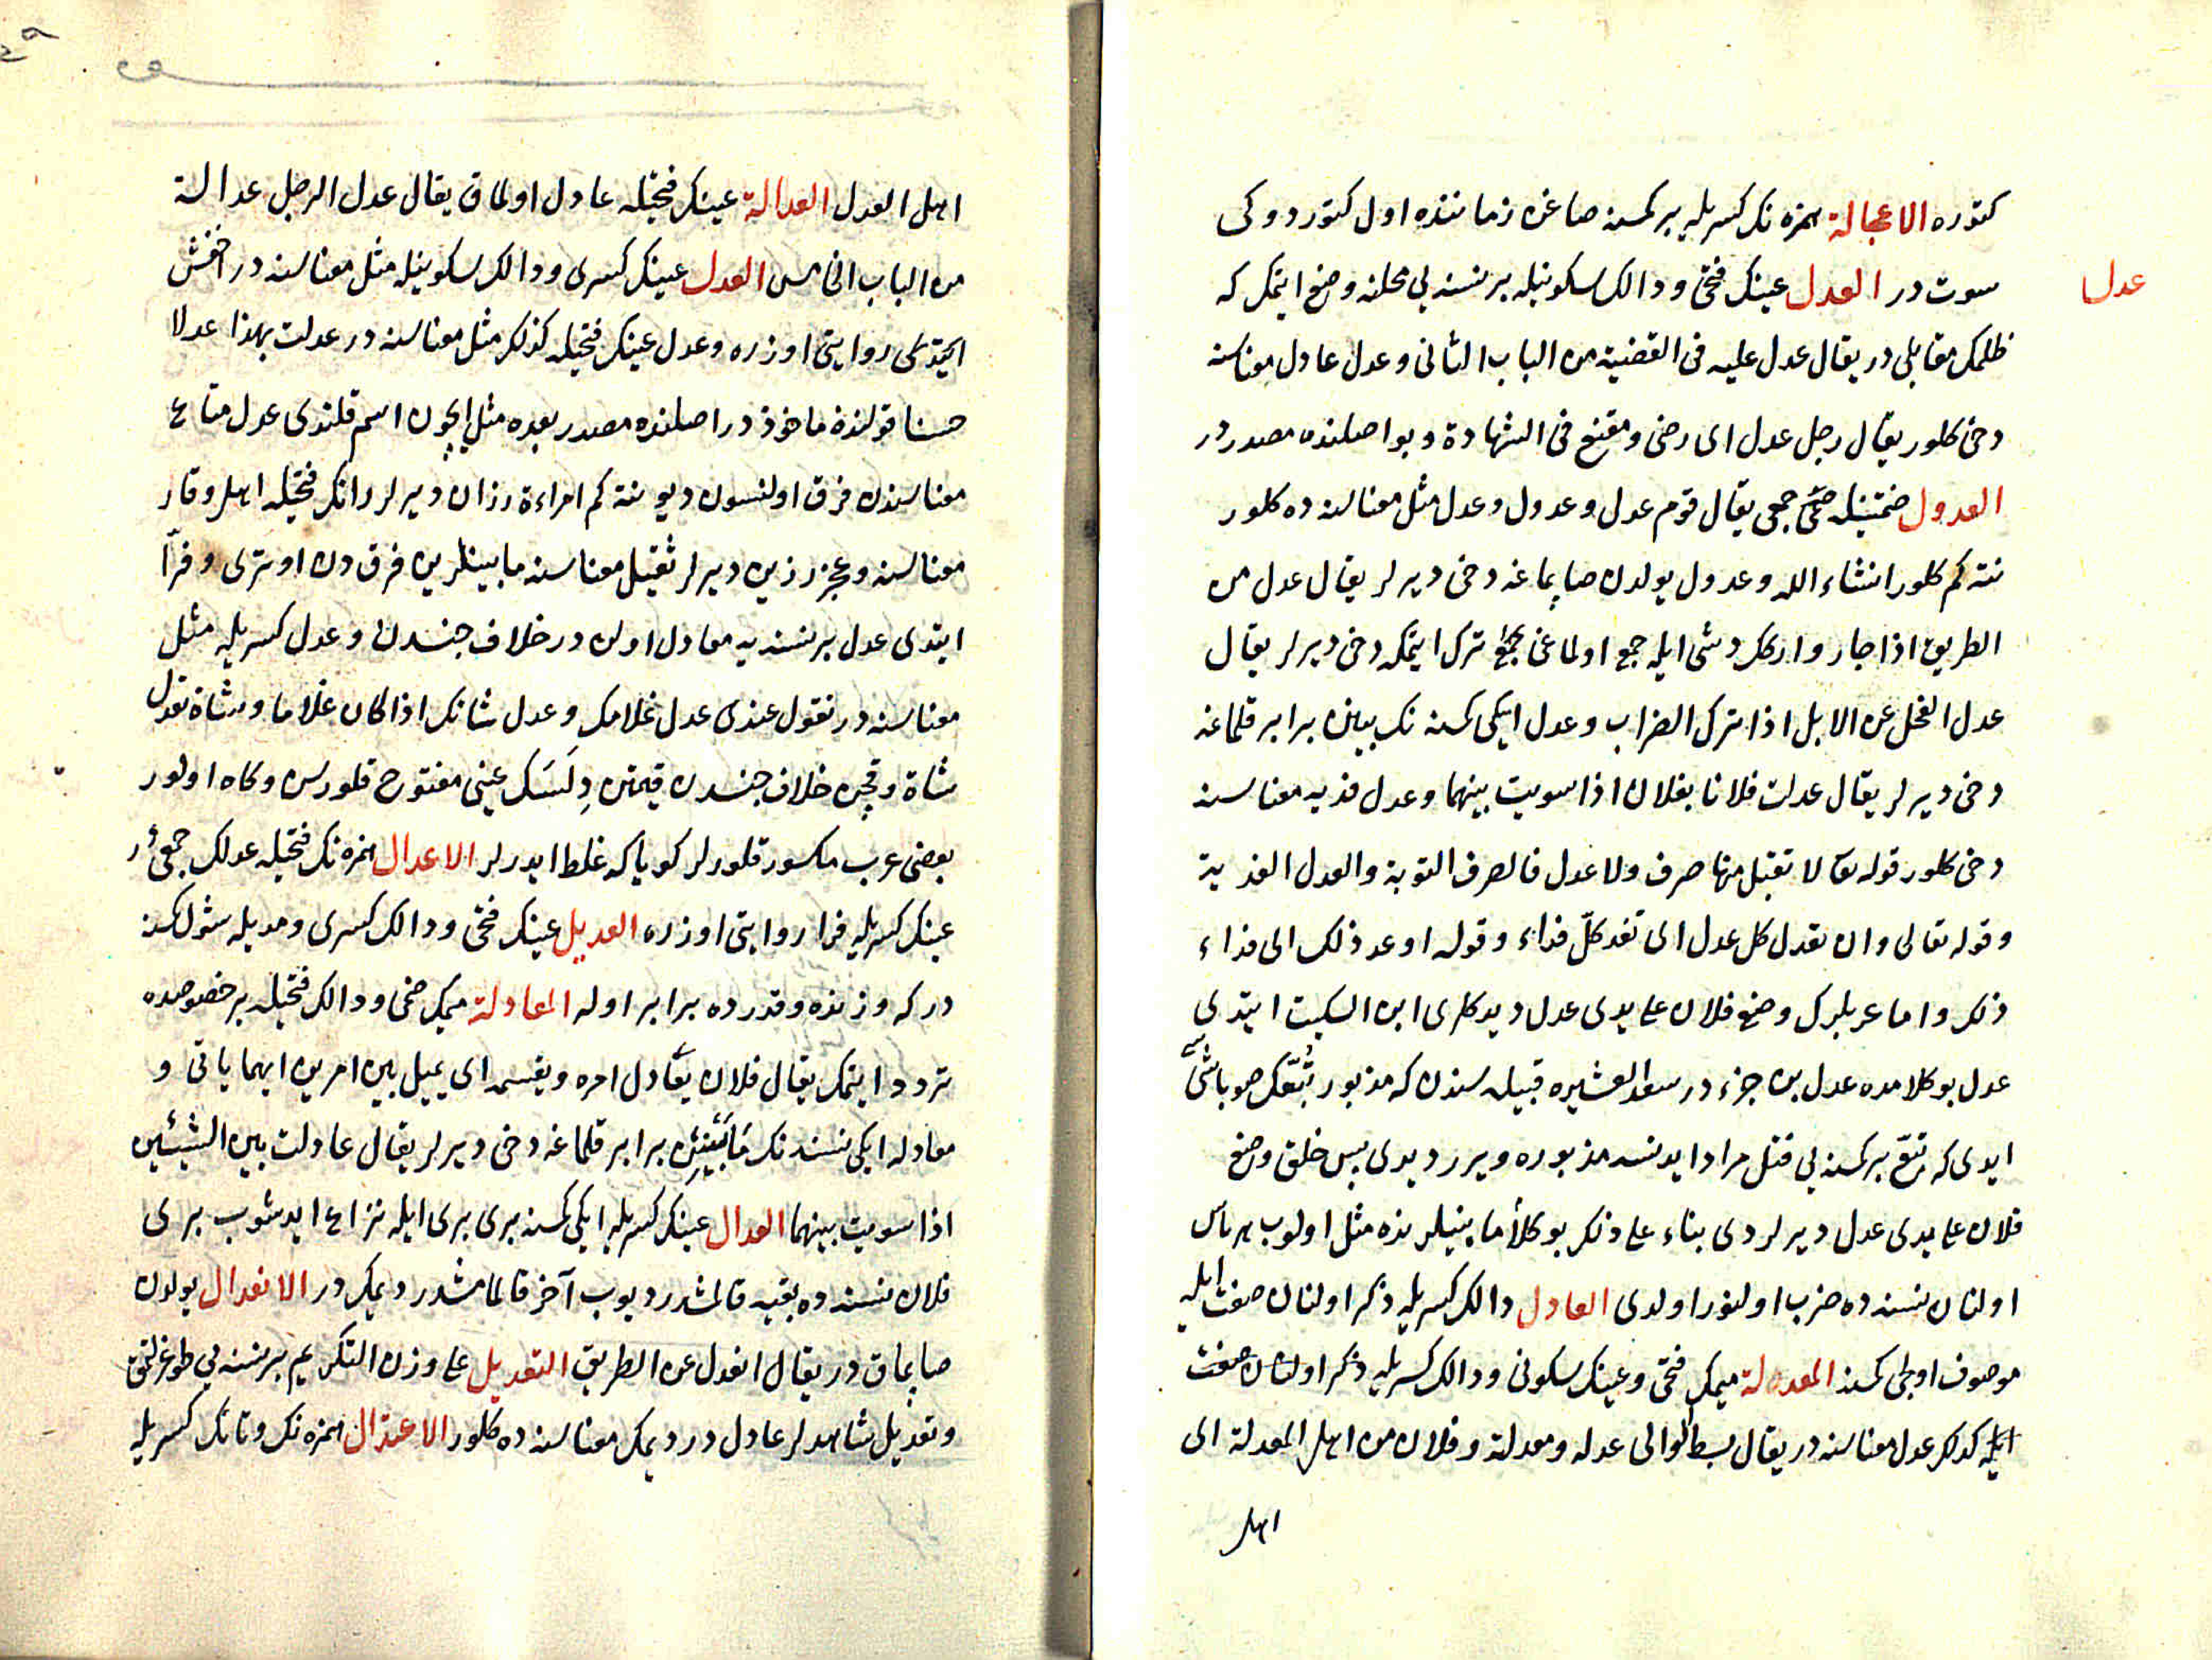 عدل
كتوره الاعجالة همزه نك كسريله بر كمسنه صاغن زماننده اول كتوردوكى
سوت در العدل عينك فتحى ودالك سكونيله بر نسنه يى محلنه وضع ايتمك كه
ظلمك مقابلى در يقال عدل عليه فى القضية من الباب الثانى وعدل عادل معناسنه
دخى كلور يقال رجل عدل اى رضى ومقنع فى الشهادة وبو اصلنده مصدر در
العدول ضمتينله جمعى يقال قوم عدل وعدول وعدل مثل معناسنه ده كلور
نته كم كلور انشاء الله وعدول يولدن صاپماغه دخى ديرلر يقال عدل من
الطريق اذا جار واركك دشى ايله جمع اولماغى ترك ايتمكه دخى ديرلر يقال
عدل الفحل عن الابل اذا ترك الضراب وعدل ايكى كمسنه نك بينن برابر قلماغه
دخى ديرلر يقال عدلت فلانا بفلان اذا سويت بينهما وعدل فديه معناسنه
دخى كلور قوله تعا لا تقبل منها صرف ولا عدل فالصرف التوبة والعدل الفدية
وقوله تعالى وان تعدل كل عدل اى تفد كلّ فداء وقوله او عد ذلك اى فداء
ذلك واما عربلرك وضع فلان على يدى عدل ديدكلرى ابن السكيت ايتدى
عدل بو كلامده عدل بن جزء در سعد العشيره قبيله سندن كه مذبور تبّعك صوباشى سى
ايدى كه تبّع بر كمسنه يى قتل مراد ايدنسه مذبوره ويرردى پس خلق وضع
فلان على يدى عدل ديرلردى بناء على ذلك بو كلام بينلرنده مثل اولوب هر يأس
اولنان نسنه ده ضرب اولنور اولدى العادل دالك كسريله ذكر اولنان صفت ايله
موصوف اوجلى كمسنه المعدلة ميمك فتحى وعينك سكونى ودالك كسريله ذكر اولنان صفت
ايله كذلك عدل معناسنه در يقال بسط الوالى عدله ومعدلة وفلان من اهل المعدلة اى
اهل
اهل العدل العدالة عينك فتحيله عادل اولماق يقال عدل الرجل عدالة
من الباب الخامس العدل عينك كسرى ودالك سكونيله مثل معناسنه در اخفش
ايتدوكى روايتى اوزره وعدل عينك فتحيله كذلك مثل معناسنه در عدلت بهذا عدلا
حسنا قولنده ماخوذ در اصلنده مصدر بعده مثل ايچون اسم قلندى عدل متاع
معناسندن فرق اولنسون ديو نته كم امراءة رزان ديرلر رانك فتحيله اهل وقار
معناسنه وعجز رزين ديرلر ثقيل معناسنه مابينلرين فرق دن اوترى وفرّا
ايتدى عدل بر نسنه يه معادل اولن در خلاف جنسدن وعدل كسريله مثل
معناسنه در تقول عندى عدل غلامك وعدل شاتك اذا كان غلاما وشاة تعدل
شاة وقچن خلاف جنسدن قيمتن دِلَسَك عينى مفتوح قلورسن وكاه اولور
بعضى عرب مكسور قلورلر كويا كه غلط ايدرلر الاعدال همزه نك فتحيله عدلك جمعى در
عينك كسريله فرا روايتى اوزره العديل عينك فتحى ودالك كسرى ومديله شول كمسنه
در كه وزنده وقدرده برابر اوله المعادلة ميمك ضمى ودالك فتحيله بر خصوصده
تردد ايتمك يقال فلان يعادل امره ويقسمه اى يميل بين امرين ايهما ياتى و
معادله ايكى نسنه نك مَابَيْنِنِى برابر قلماغه دخى ديرلر يقال عادلت بين الشيئين
اذا سويت بينهما العدال عينك كسريله ايكى كمسنه برى برى ايله نزاع ايدشوب برى
فلان نسنه ده بقيه قالمشدر ديوب آخر قالمامشدر ديمك در الانعدال يولدن
صاپماق در يقال انعدل عن الطريق التعديل على وزن التكريم بر نسنه يى طوغرلتمق
وتعديل شاهدلر عادل در ديمك معناسنه ده كلور الاعتدال همزه نك وتانك كسريله